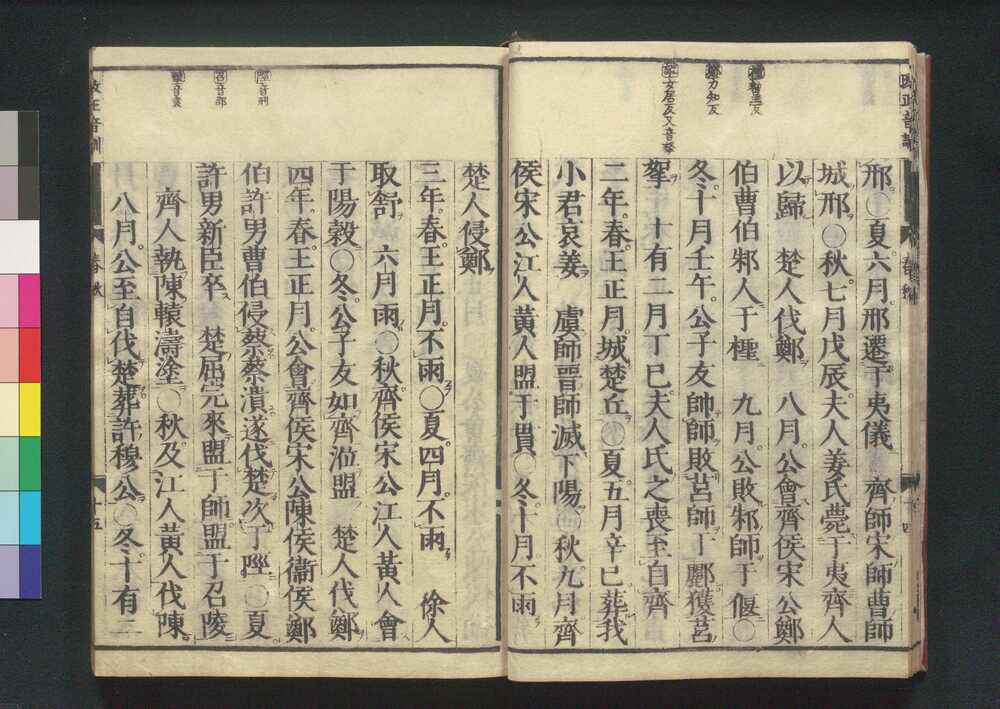 邢○夏六月邢遷于夷儀　齊師宋師曹師
城邢○秋七月戊辰夫人姜氏薨于夷齊人
以歸　楚人伐鄭　八月公會齊侯宋公鄭
伯曹伯邾人于檉　九月公敗邾師于偃○
冬十月壬午公子友帥師敗莒師于酈獲莒
挐　十有二月丁巳夫人氏之喪至自齊
二年春王正月城楚丘○夏五月辛巳葬我
小君哀姜　虞師晉師滅下陽○秋九月齊
侯宋公江人黃人盟于貫○冬十月不雨
楚人侵鄭
三年春王正月不雨○夏四月不雨　徐人
取舒　六月雨○秋齊侯宋公江人黃人會
于陽穀○冬公子友如齊涖盟　楚人伐鄭
四年春王正月公會齊侯宋公陳侯衞侯鄭
伯許男曹伯侵蔡蔡潰遂伐楚次于陘○夏
許男新臣卒　楚屈完來盟于師盟于召陵
齊人執陳轅濤塗○秋及江人黃人伐陳
八月公至自伐楚葬許穆公○冬十有二
力知反
女居反又音
陘音刑
召音邵
改正音訓
春秋
十五